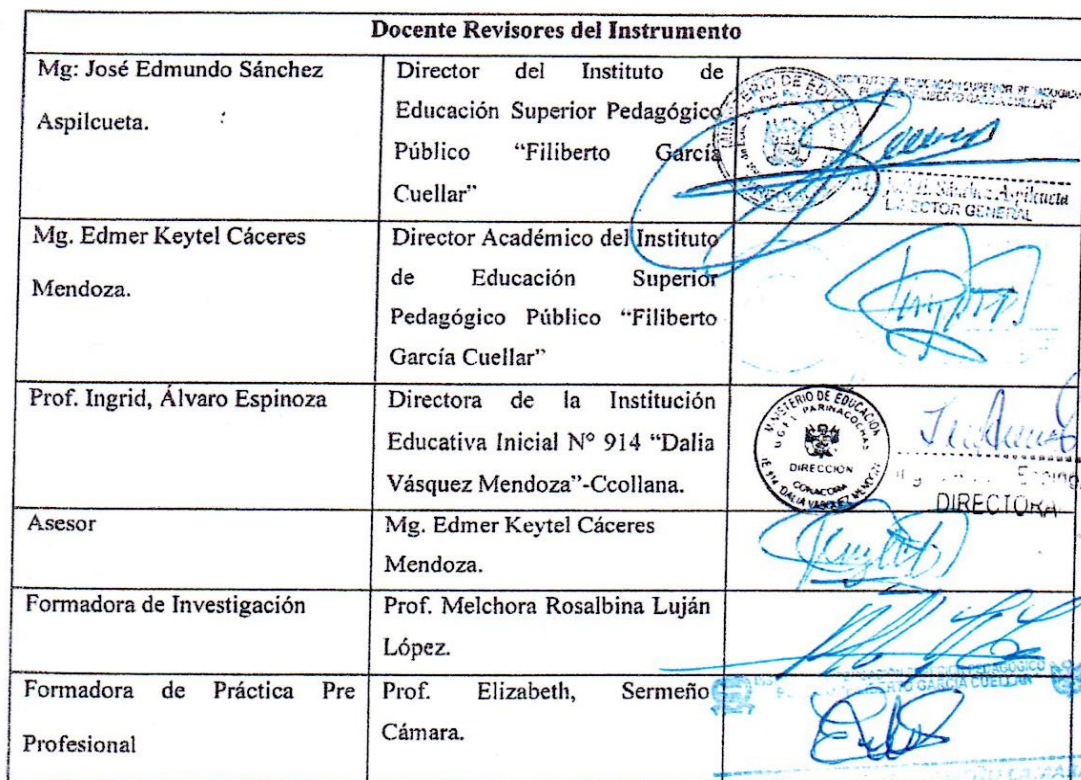 Docente Revisores del Instrumento
Mg: José Edmundo Sánchez
Aspilcueta.
Director del Instituto de
Educación Superior Pedagógico
Público “Filiberto García
Cuellar”
Sánchez Aspilcueta
DIRECTOR GENERAL
Mg. Edmer Keytel Cáceres
Mendoza.
Director Académico del Instituto
de Educación Superior
Pedagógico Público “Filiberto
García Cuellar”
Prof. Ingrid, Álvaro Espinoza
Directora de la Institución
Educativa Inicial N° 914 “Dalia
Vásquez Mendoza”-Ccollana.
MINISTERIO DE EDUCACIÓN
U.G.E.L. PARINACOCHAS
DIRECCIÓN
DIRECTORA
Asesor
Mg. Edmer Keytel Cáceres
Mendoza.
Formadora de Investigación
Prof. Melchora Rosalbina Luján
López.
Formadora de Práctica Pre
Profesional
Prof. Elizabeth, Sermeño
Cámara.